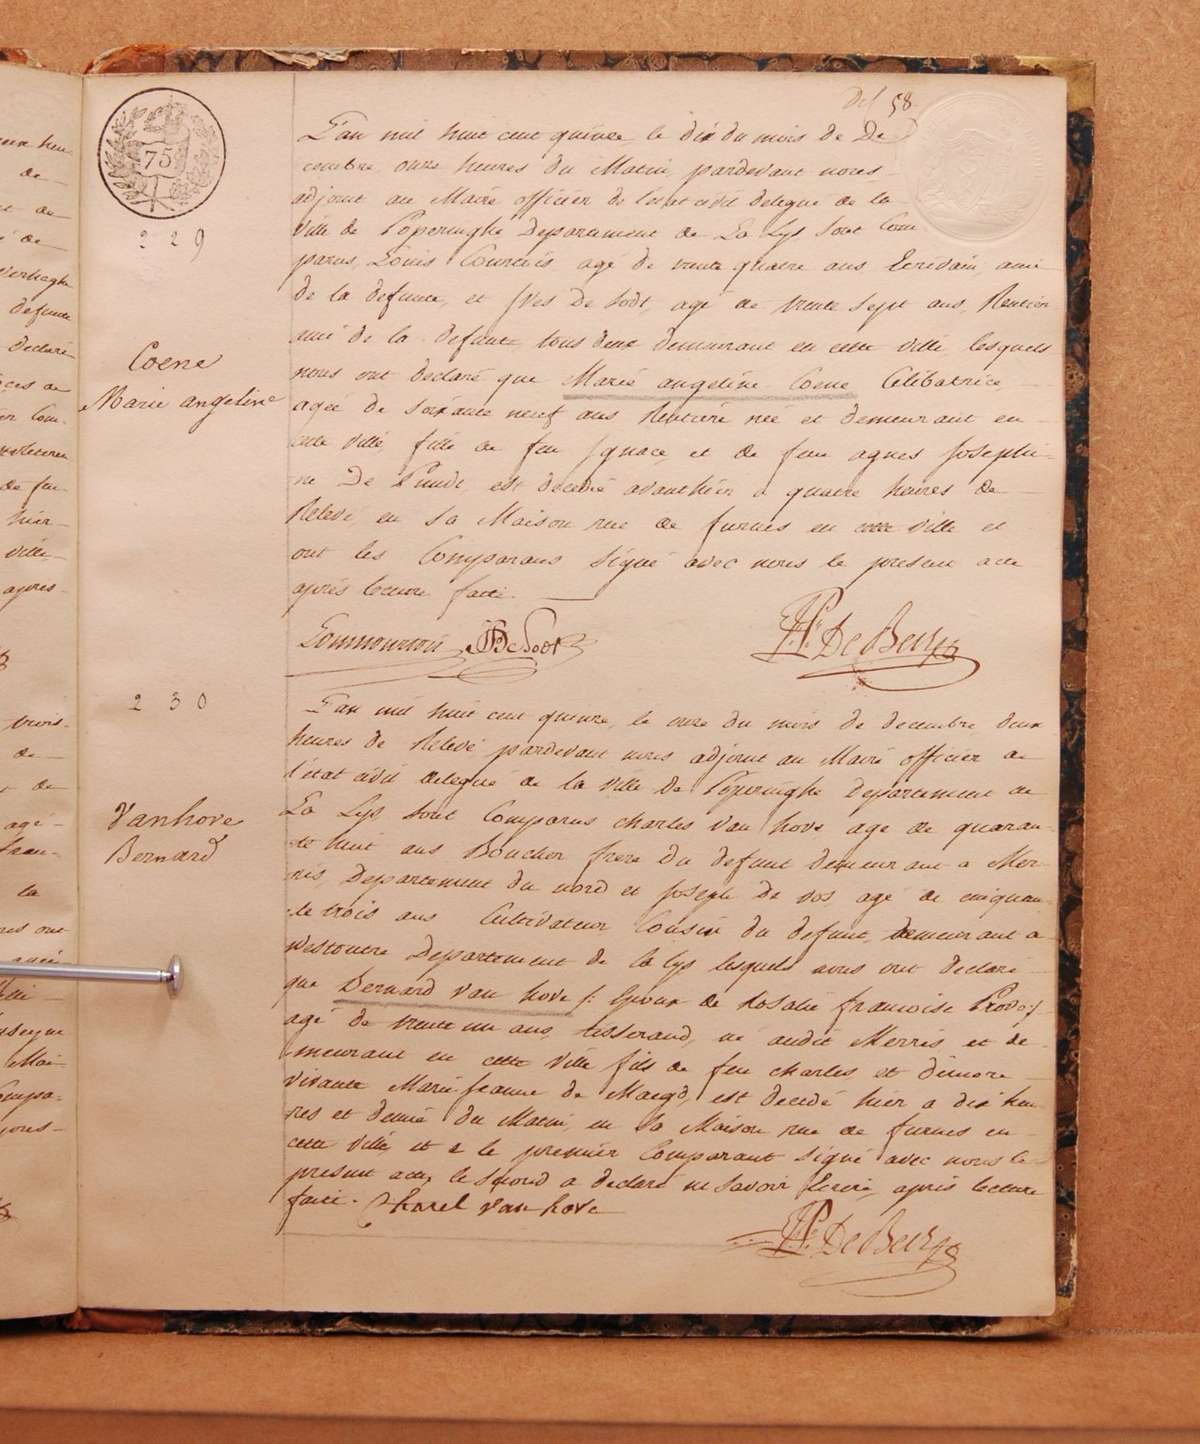 58
75
229
Coene
Marie angeline
L'an mil huit cent quinze, le dix du mois de De
cembre onze heures du Matin, pardevant nous
adjoint au Maire officier de l'état civil delegué de la
ville de Poperinghe Departement de La Lys sont Com
parus, Louis Courtois agé de trente quatre ans Ecrivain, ami
de la defunte, et Ives De Sodt, agé de trente sept ans, Rentier
ami de la defunte, tous deux demeurant en cette ville, lesquels
nous ont declaré que Marie angeline Coene Célibatrice
agée de soixante neuf ans Rentière née et demeurant en
cette ville, fille de feu Ignace, et de feue agnes Josephi
ne De Puudt, est decedé avanthier a quatre heures de
Relevé, en sa Maison rue de furnes en cette ville et
ont les Comparans signé avec nous le present acte
après lecture faite.
De Sodt
De Beir
230
Vanhove
Bernard
L'an mil huit cent quinze, le onze du mois de decembre deux
heures de Relevé pardevant nous adjoint au Maire officier de
l'état civil delegué de la ville de Poperinghe departement de
La Lys sont Comparus charles van hove agé de quaran
te huit ans Boucher frere du defunt demeurant a Mer
ris, Departement du nord et Joseph de vos, agé de cinquan
te trois ans Cultivateur Cousin du defunt, demeurant a
Westoutre Departement de la lys lesquels nous ont declaré
que Bernard van hove /: Epoux de Rosalie francoise Prodo:/
agé de trente un ans, tisserand, né audit Merris et de
meurant en cette ville fils de feu charles et d'encore
vivante Marie Jeanne de Maegd, est decedé hier a dix heu
res et demie du Matin, en sa Maison rue de furnes en
cette ville, et a le premier Comparant signé avec nous le
present acte, le second a declaré ne savoir Ecrire, après lecture
faite. Charel van hove
De Beir